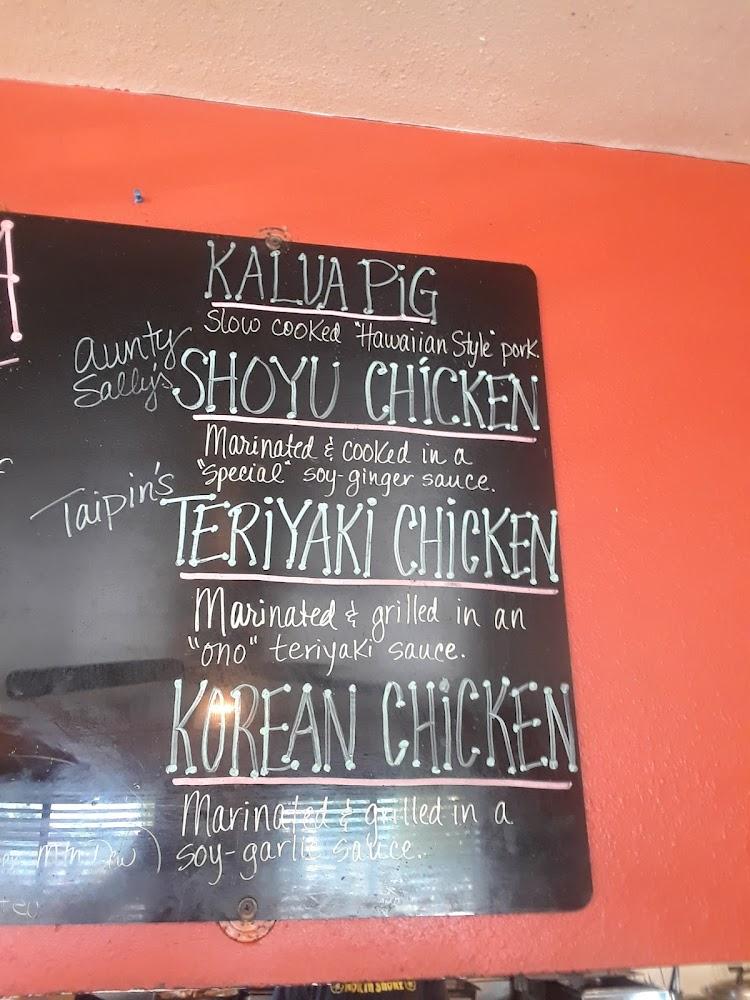 KALUA PiG
Slow cooked "Hawaiian Style" pork.
aunty
Sally's
SHOYU CHiCKEN
Marinated & cooked in a
"special" soy-ginger sauce.
Taipin's
TERiYAKi CHiCKEN
Marinated & grilled in an
"ono" teriyaki sauce.
KOREAN CHiCKEN
Marinated & grilled in a
soy-garlic sauce.
mtn Dew)
NORTH SHORE